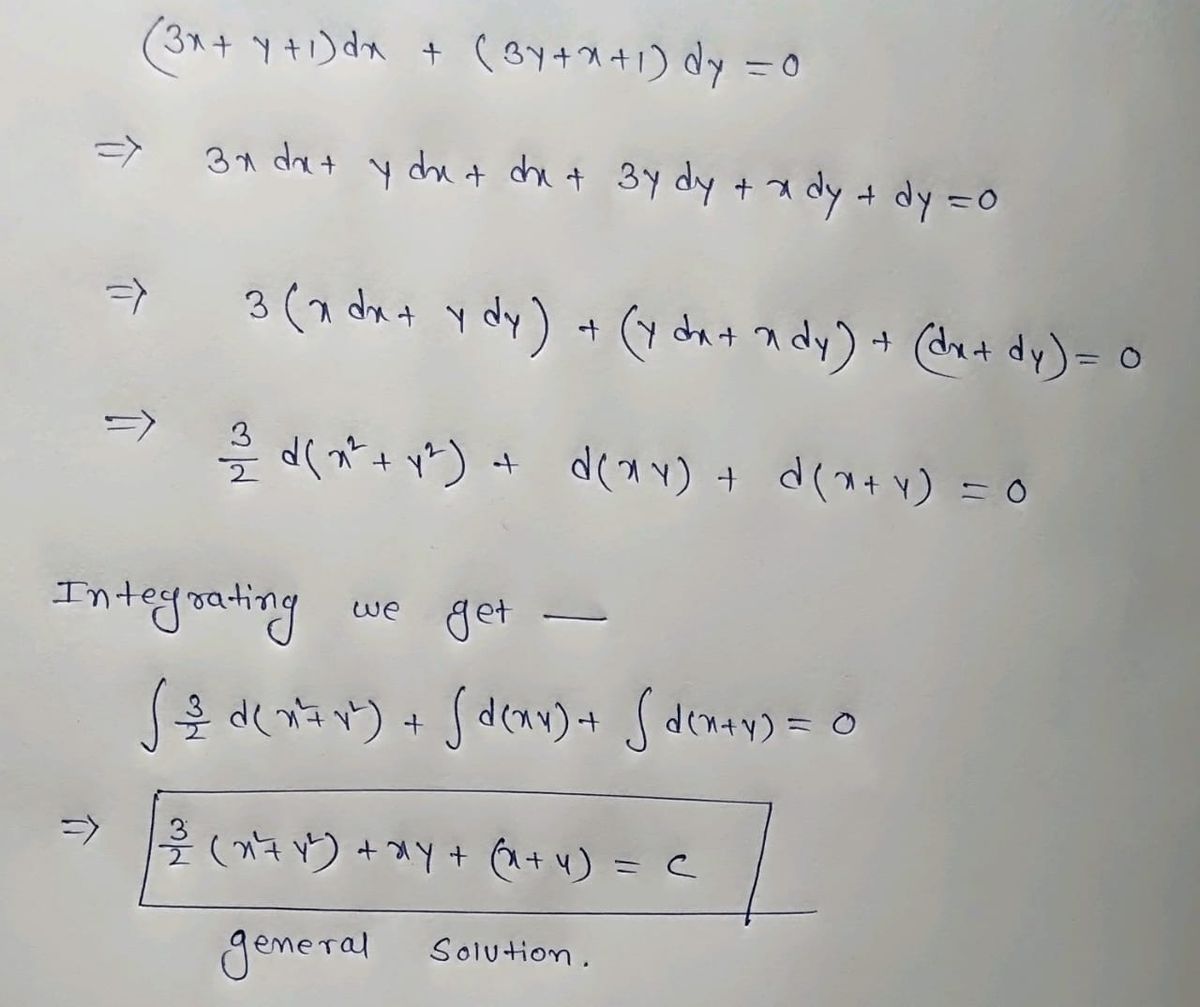 (3x + y + 1) dx + (3y + x + 1) dy = 0
⇒ 3x dx + y dx + dx + 3y dy + x dy + dy = 0
⇒ 3 (x dx + y dy) + (y dx + x dy) + (dx + dy) = 0
⇒ 3/2 d(x² + y²) + d(xy) + d(x + y) = 0
Integrating we get —
∫ 3/2 d(x² + y²) + ∫ d(xy) + ∫ d(x+y) = 0
⇒ 3/2 (x² + y²) + xy + (x + y) = c
general solution.